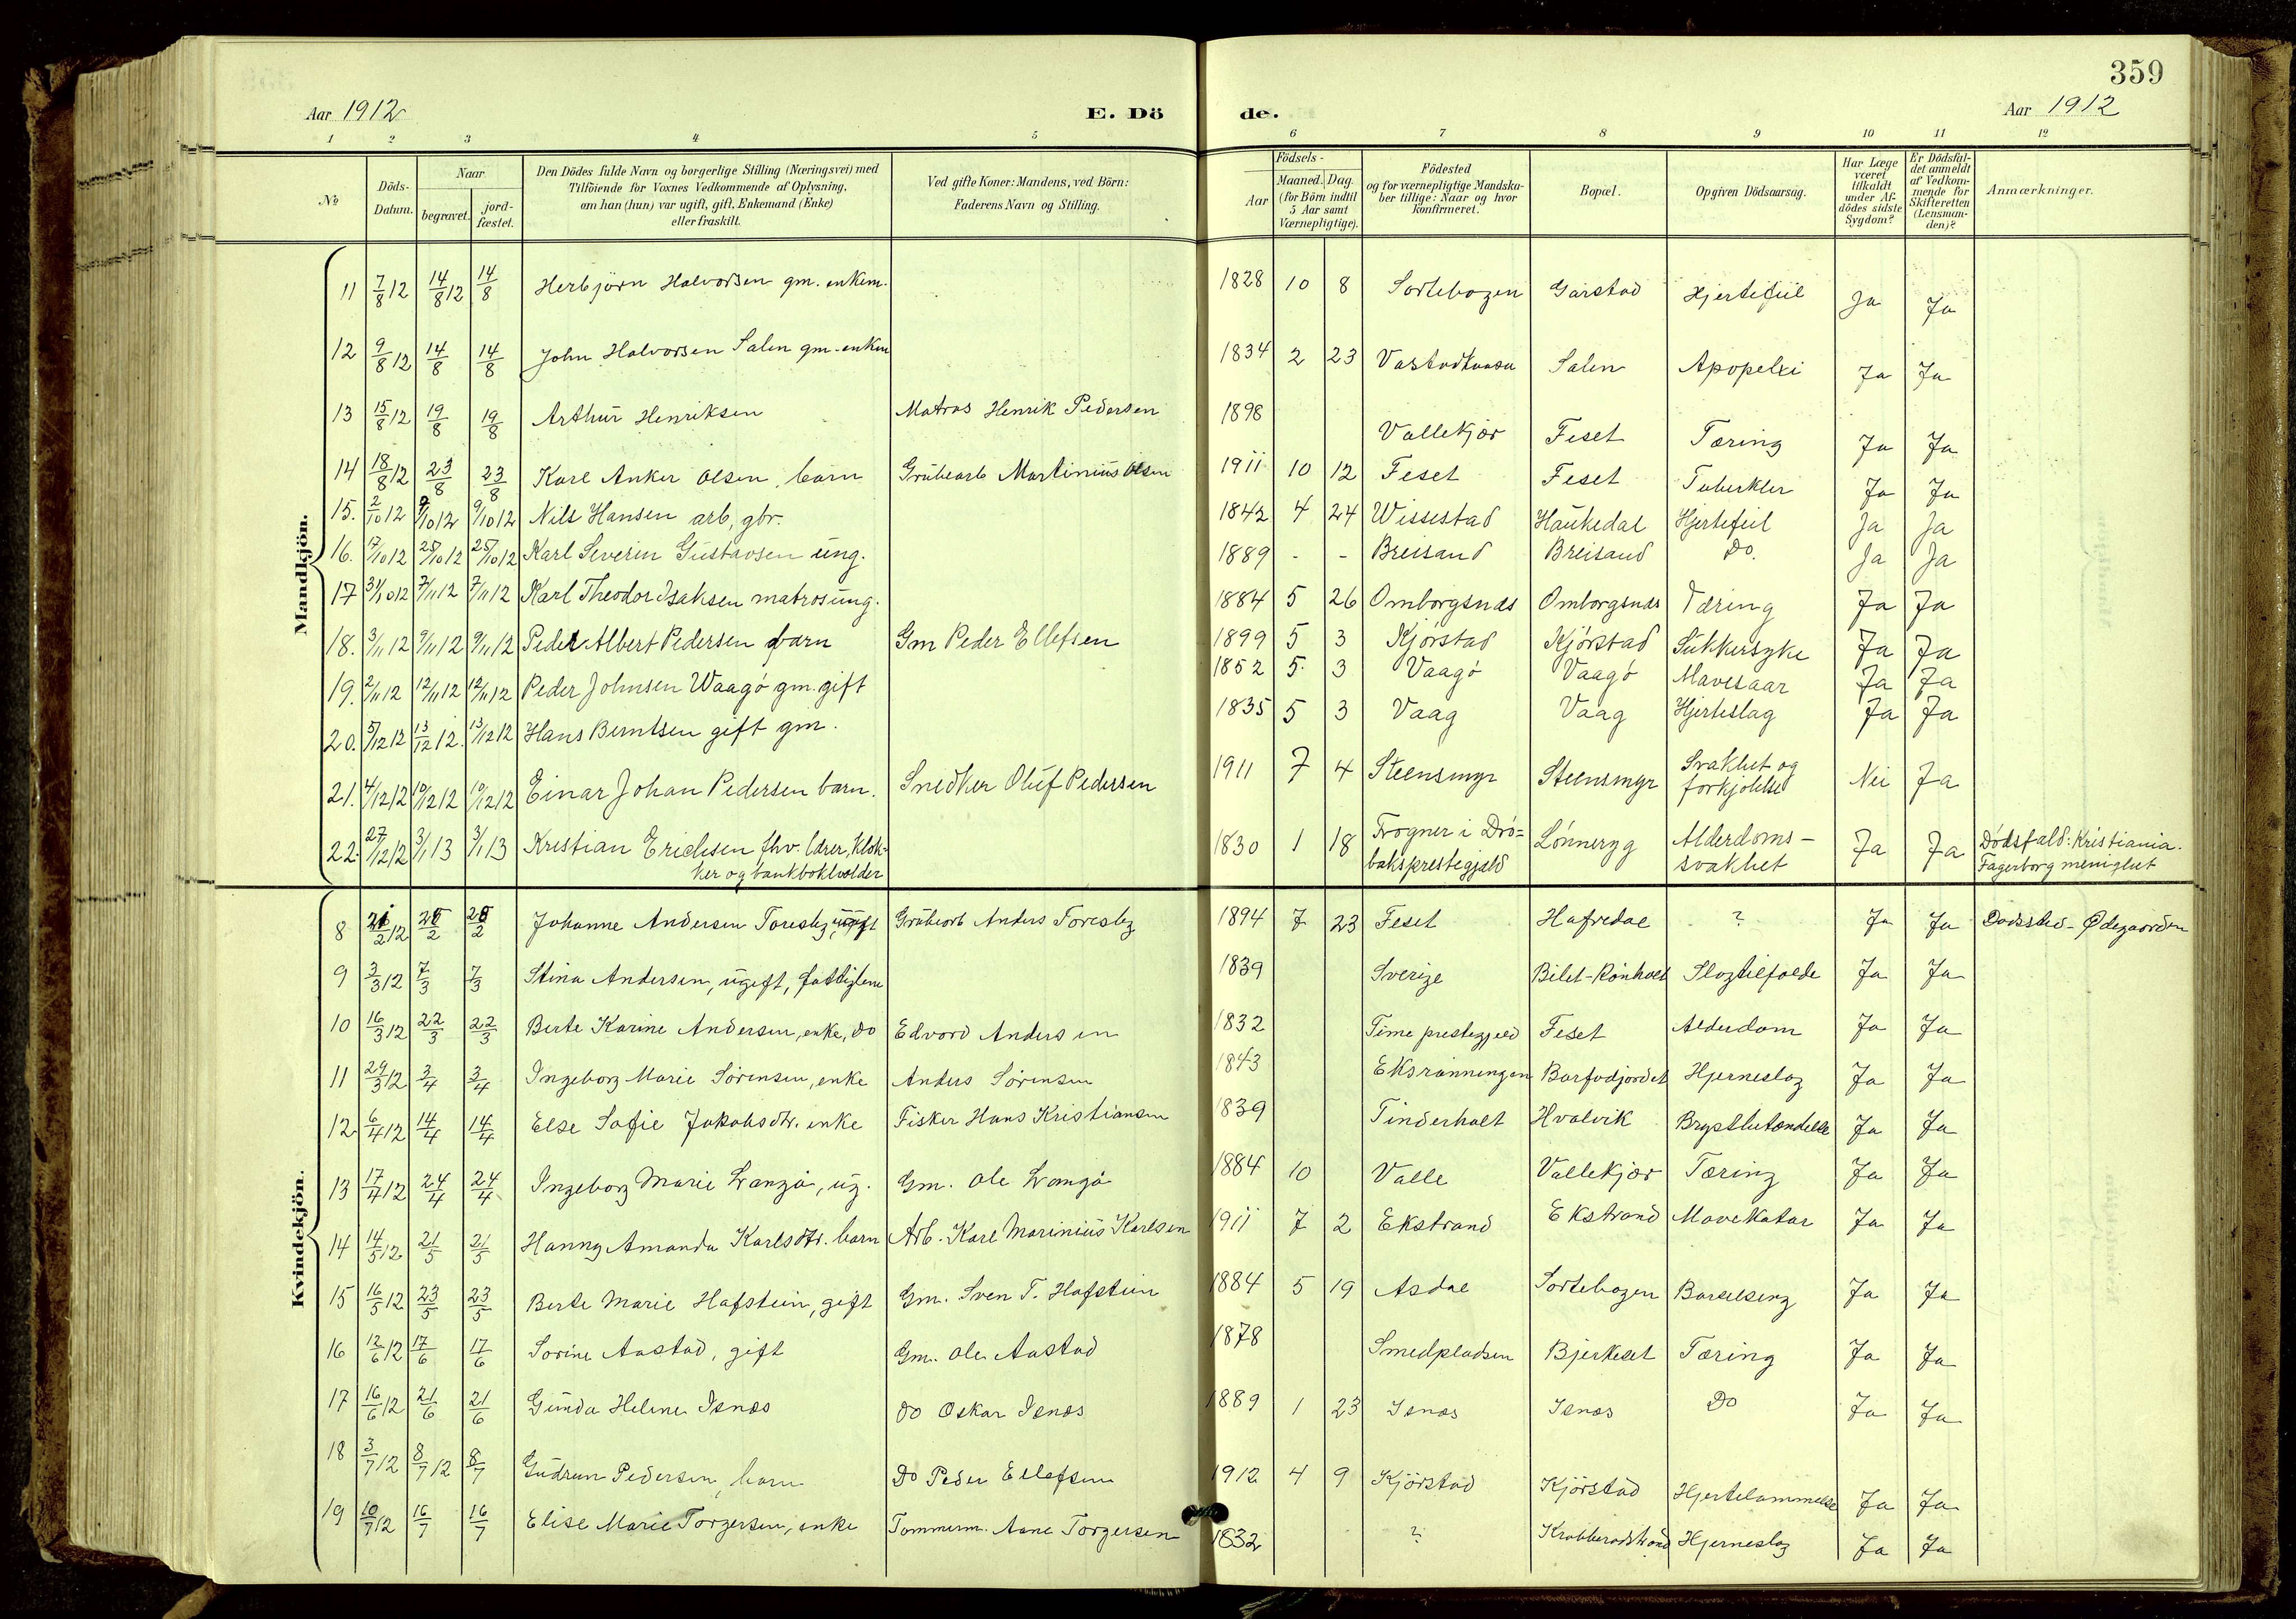 359
Aar 1912 E. Dö de. Aar 1912
1 2 3 4 5 6 7 8 9 10 11 12
№ Döds-Datum. Naar begravet. jord-fæstet. Den Dödes fulde Navn og borgerlige Stilling (Næringsvei) med Tilföiende for Voxnes Vedkommende af Oplysning, om han (hun) var ugift, gift, Enkemand (Enke) eller fraskilt. Ved gifte Koner: Mandens, ved Börn: Faderens Navn og Stilling. Födsels- Aar Maaned. Dag. (for Börn indtil 5 Aar samt Værnepligtige). Födested og for værnepligtige Mandska-ber tillige: Naar og hvor konfirmeret. Bopæl. Opgiven Dödsaarsag. Har Læge været tilkaldt under Af-dödes sidste Sygdom? Er Dödsfal-det anmeldt af Vedkom-mende for Skifteretten (Lensman-den)? Anmærkninger.
Mandkjön.
11 7/8 12 14/8 12 14/8 Herbjörn Halvorsen gm. enkem. 1828 10 8 Sortebogen Garstad Hjertefeil Ja Ja
12 9/8 12 14/8 14/8 John Halvorsen Salen gm. enkem 1834 2 23 Salen Apopelxi Ja Ja
13 15/8 12 19/8 19/8 Arthur Henriksen Matros Henrik Pedersen 1898 Vallekjær Feset Tæring Ja Ja
14 18/8 12 23/8 23/8 Karl Anker Olsen, barn Grubearb Martinius Olsen 1911 10 12 Feset Feset Tuberkler Ja Ja
15. 2/10 12 9/10 12 9/10 12 Nils Hansen arb, gbr. 1842 4 24 Wissestad Haukedal Hjertefeil Ja Ja
16. 17/10 12 25/10 12 25/10 12 Karl Severin Gustavsen ung. 1889 - - Breisand Breisand Do. Ja Ja
17 31/10 12 7/11 12 7/11 12 Karl Theodor Isaksen matros ung. 1884 5 26 Omborgsnæs Omborgsnæs Tæring Ja Ja
18. 3/11 12 9/11 12 9/11 12 Peder Albert Pedersen barn Gm Peder Ellefsen 1899 5 3 Kjörstad Kjörstad Sukkersyke Ja Ja
19. 2/11 12 12/11 12 12/11 12 Peder Johnsen Waagö gm. gift 1852 5 3 Vaagö Vaagö Mavesaar Ja Ja
20. 5/12 12 13/12 12. 13/12 12 Hans Berntsen gift gm. 1835 5 3 Vaag Vaag Hjerteslag Ja Ja
21. 4/12 12 10/12 12 10/12 12 Einar Johan Pedersen barn. Snedker Oluf Pedersen 1911 7 4 Steensmyr Steensmyr Svakhet og forkjölelse Nei Ja
22. 27/12 12 3/1 13 3/1 13 Kristian Erichsen fhv. lærer, klok- 1830 1 18 Frogner i Drö- Lönneryg Alderdoms- Ja Ja Dödsfald: Kristiania.
ker og bankbokholder bakspræstegjæld svakhet Fagerborg menighet
Kvindekjön.
8 21/2 12 28/2 28/2 Johanne Andersen Toresbg ugift Grubearb Anders Toresbg 1894 7 23 Feset Hafredal ? Ja Ja Dødssted - Ødegaarden
9 3/3 12 7/3 7/3 Stina Andersen, ugift, fattiglem 1839 Sverige Bilet-Rönholt Slagtilfælde Ja Ja
10 16/3 12 22/3 22/3 Berte Karine Andersen, enke, do Edvard Andersen 1832 Time prestegjeld Feset Alderdom Ja Ja
11 29/3 12 3/4 3/4 Ingeborg Marie Sørensen, enke Anders Sørensen 1843 Eksrønningen Barfodjordet Hjerneslag Ja Ja
12 6/4 12 14/4 14/4 Else Sofie Jakobsdtr. enke Fisker Hans Kristiansen 1839 Tinderholt Hvalvik Brystbetændelse Ja Ja
13 17/4 12 24/4 24/4 Ingeborg Marie Langø, ug. Gm. Ole Langø 1884 10 Valle Vallekjær Tæring Ja Ja
14 14/5 12 21/5 21/5 Hanny Amanda Karlsdtr. barn Arb. Karl Marinius Karlsen 1911 7 2 Ekstrand Ekstrand Mavekatar Ja Ja
15 16/5 12 23/5 23/5 Berte Marie Hafstein, gift Gm. Sven T. Hafstein 1884 5 19 Asdal Sortebogen Barselseng Ja Ja
16 12/6 12 17/6 17/6 Sorine Aastad, gift Gm. Ole Aastad 1878 Smedpladsen Bjerkeset Tæring Ja Ja
17 16/6 12 21/6 21/6 Gunda Helene Isnæs Do Oskar Isnæs 1889 1 23 Isnæs Isnæs Do Ja Ja
18 3/7 12 8/7 12 8/7 Gudrun Pedersen, barn Do Peder Ellefsen 1912 4 9 Kjörstad Kjörstad Hjertelammelse Ja Ja
19 10/7 12 16/7 16/7 Elise Marie Torgersen, enke Tømmerm. Aane Torgersen 1832 ? Krabberødstrand Hjerneslag Ja Ja